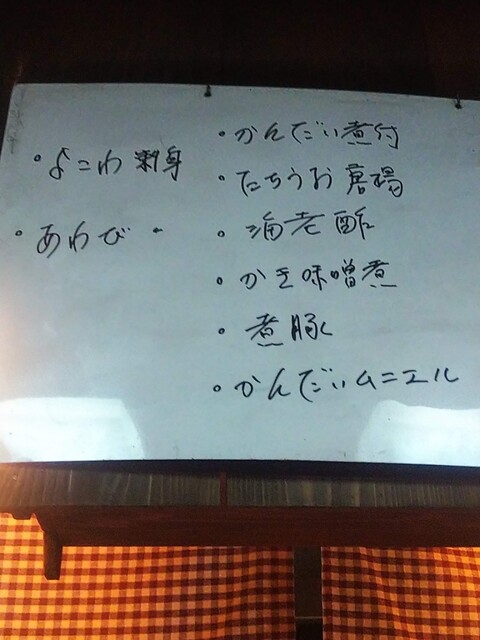 ・よこわ 刺身
・あわび ・
・かんだい煮付
・たちうお 唐揚
・海老酢
・かき味噌煮
・煮豚
・かんだいムニエル